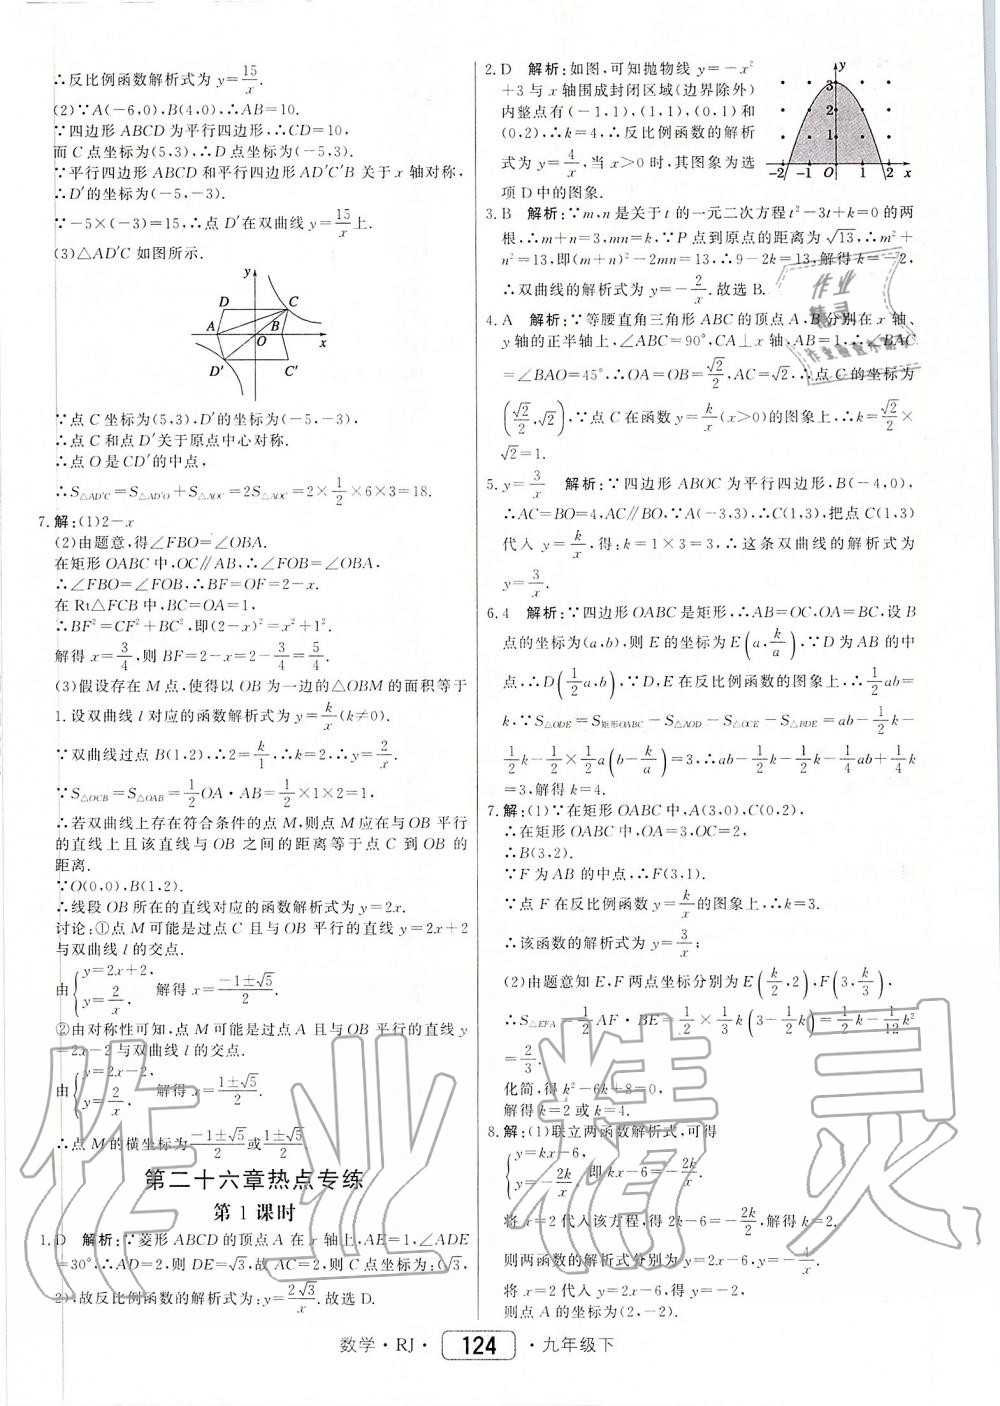 ∴反比例函数解析式为 y=15/x.
(2)∵A(-6,0),B(4,0),∴AB=10.
∵四边形 ABCD 为平行四边形,∴CD=10,
而 C 点坐标为(5,3),∴D 点坐标为(-5,3).
∵平行四边形 ABCD 和平行四边形 AD′C′B 关于 x 轴对称,
∴D′的坐标为(-5,-3).
∵-5×(-3)=15,∴点 D′在双曲线 y=15/x上.
(3)△AD′C 如图所示.
y
D C
A B
O x
D′ C′
∵点 C 坐标为(5,3),D′的坐标为(-5,-3).
∴点 C 和点 D′关于原点中心对称.
∴点 O 是CD′的中点,
∴S△AD′C=S△AD′O+S△AOC=2S△AOC=2×1/2×6×3=18.
7.解:(1)2-x
(2)由题意,得∠FBO=∠OBA.
在矩形 OABC 中,OC∥AB,∴∠FOB=∠OBA,
∴∠FBO=∠FOB,∴BF=OF=2-x.
在 Rt△FCB 中,BC=OA=1,
∴BF²=CF²+BC²,即(2-x)²=x²+1².
解得 x=3/4,则 BF=2-x=2-3/4=5/4.
(3)假设存在 M 点,使得以 OB 为一边的△OBM 的面积等于
1.设双曲线 l 对应的函数解析式为 y=k/x(k≠0).
∵双曲线过点 B(1,2),∴2=k/1,∴k=2,∴y=2/x.
∵S△OCB=S△OAB=1/2OA·AB=1/2×1×2=1,
∴若双曲线上存在符合条件的点 M,则点 M 应在与 OB 平行
的直线上且该直线与 OB 之间的距离等于点 C 到 OB 的
距离.
∵O(0,0),B(1,2).
∴线段 OB 所在的直线对应的函数解析式为 y=2x.
讨论:①点 M 可能是过点 C 且与 OB 平行的直线 y=2x+2
与双曲线 l 的交点.
由{y=2x+2, y=2/x, 解得 x=(-1±√5)/2.
②由对称性可知,点 M 可能是过点 A 且与 OB 平行的直线 y
=2x-2 与双曲线 l 的交点.
由{y=2x-2, y=2/x, 解得 x=(1±√5)/2.
∴点 M 的横坐标为(-1±√5)/2或(1±√5)/2.
第二十六章热点专练
第 1 课时
1.D 解析:∵菱形 ABCD 的顶点 A 在 x 轴上,AE=1,∠ADE
=30°,∴AD=2,则 DE=√3,故 AC=2,则 C 点坐标为:(√3,
2),故反比例函数的解析式为:y=2√3/x.故选 D.
2.D 解析:如图,可知抛物线 y=-x²
+3 与 x 轴围成封闭区域(边界除外)
内整点有(-1,1),(1,1),(0,1)和
(0,2),∴k=4,∴反比例函数的解析
式为 y=4/x,当 x>0 时,其图象为选
项 D 中的图象.
y
3
2
1
-2 -1 O 1 2 x
3.B 解析:∵m,n 是关于 t 的一元二次方程 t²-3t+k=0 的两
根,∴m+n=3,mn=k,∵P 点到原点的距离为√13,∴m²+
n²=13,即(m+n)²-2mn=13,∴9-2k=13,解得 k=-2,
∴双曲线的解析式为 y=-2/x.故选 B.
4.A 解析:∵等腰直角三角形 ABC 的顶点 A、B 分别在 x 轴、
y 轴的正半轴上,∠ABC=90°,CA⊥x 轴,AB=1,∴∠BAC
=∠BAO=45°,∴OA=OB=√2/2,AC=√2,∴点 C 的坐标为
(√2/2,√2),∵点 C 在函数 y=k/x(x>0)的图象上,∴k=√2/2×
√2=1.
5.y=3/x 解析:∵四边形 ABOC 为平行四边形,B(-4,0),
∴AC=BO=4,AC∥BO,∵A(-3,3),∴C(1,3),把点 C(1,3)
代入 y=k/x,得:k=1×3=3,∴这条双曲线的解析式为
y=3/x.
6.4 解析:∵四边形 OABC 是矩形,∴AB=OC,OA=BC,设 B
点的坐标为(a,b),则 E 的坐标为 E(a,k/a),∵D 为 AB 的中
点,∴D(1/2a,b),∵D、E 在反比例函数的图象上,∴1/2ab=
k,∵S△ODE=S矩形OABC-S△AOD-S△OCE-S△BDE=ab-1/2k-
1/2k-1/2×1/2a(b-k/a)=3,∴ab-1/2k-1/2k-1/4ab+1/4k
=3,解得 k=4.
7.解:(1)∵在矩形 OABC 中,A(3,0),C(0,2),
∴在矩形 OABC 中,OA=3,OC=2,
∴B(3,2).
∵F 为 AB 的中点,∴F(3,1).
∵点 F 在反比例函数 y=k/x的图象上,∴k=3.
∴该函数的解析式为 y=3/x;
(2)由题意知 E,F 两点坐标分别为 E(k/2,2),F(3,k/3),
∴S△EFA=1/2AF·BE=1/2×1/3k(3-1/2k)=1/2k-1/12k²
=2/3.
化简,得 k²-6k+8=0.
解得 k=2 或 k=4.
8.解:(1)联立两函数解析式,可得
{y=kx-6, y=-2k/x, 即 kx-6=-2k/x,
将 x=2 代入该方程,得 2k-6=-2k/2,解得 k=2,
则两函数的解析式分别为 y=2x-6,y=-4/x.
将 x=2 代入 y=2x-6,得 y=2×2-6=-2,
则点 A 的坐标为(2,-2).
作业精灵
数学·RJ· 124 ·九年级下